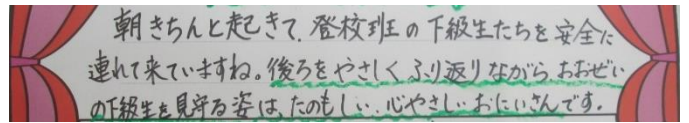 朝きちんと起きて、登校班の下級生たちを安全に
連れて来ていますね。後ろをやさしくふり返りながら、おおぜい
の下級生を見守る姿は、たのもしい、心やさしいおにいさんです。